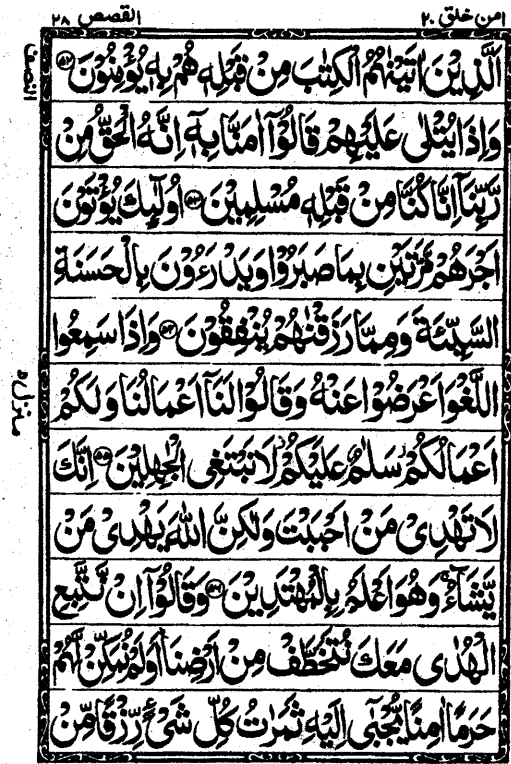 امن خلق ٢٠
القصص ٢٨
اَلَّذِيْنَ اٰتَيْنٰهُمُ الْكِتٰبَ مِنْ قَبْلِهٖ هُمْ بِهٖ يُؤْمِنُوْنَ ﴿٥٢﴾
وَاِذَا يُتْلٰى عَلَيْهِمْ قَالُوْٓا اٰمَنَّا بِهٖٓ اِنَّهُ الْحَقُّ مِنْ
رَّبِّنَآ اِنَّا كُنَّا مِنْ قَبْلِهٖ مُسْلِمِيْنَ ﴿٥٣﴾ اُولٰٓئِكَ يُؤْتَوْنَ
اَجْرَهُمْ مَّرَّتَيْنِ بِمَا صَبَرُوْا وَيَدْرَءُوْنَ بِالْحَسَنَةِ
السَّيِّئَةَ وَمِمَّا رَزَقْنٰهُمْ يُنْفِقُوْنَ ﴿٥٤﴾ وَاِذَا سَمِعُوا
اللَّغْوَ اَعْرَضُوْا عَنْهُ وَقَالُوْا لَنَآ اَعْمَالُنَا وَلَكُمْ
اَعْمَالُكُمْ سَلٰمٌ عَلَيْكُمْ لَا نَبْتَغِى الْجٰهِلِيْنَ ﴿٥٥﴾ اِنَّكَ
لَا تَهْدِىْ مَنْ اَحْبَبْتَ وَلٰكِنَّ اللّٰهَ يَهْدِىْ مَنْ
يَّشَآءُ وَهُوَ اَعْلَمُ بِالْمُهْتَدِيْنَ ﴿٥٦﴾ وَقَالُوْٓا اِنْ نَّتَّبِعِ
الْهُدٰى مَعَكَ نُتَخَطَّفْ مِنْ اَرْضِنَا اَوَلَمْ نُمَكِّنْ لَّهُمْ
حَرَمًا اٰمِنًا يُّجْبٰٓى اِلَيْهِ ثَمَرٰتُ كُلِّ شَىْءٍ رِّزْقًا مِّنْ
النصف
منزل ٥